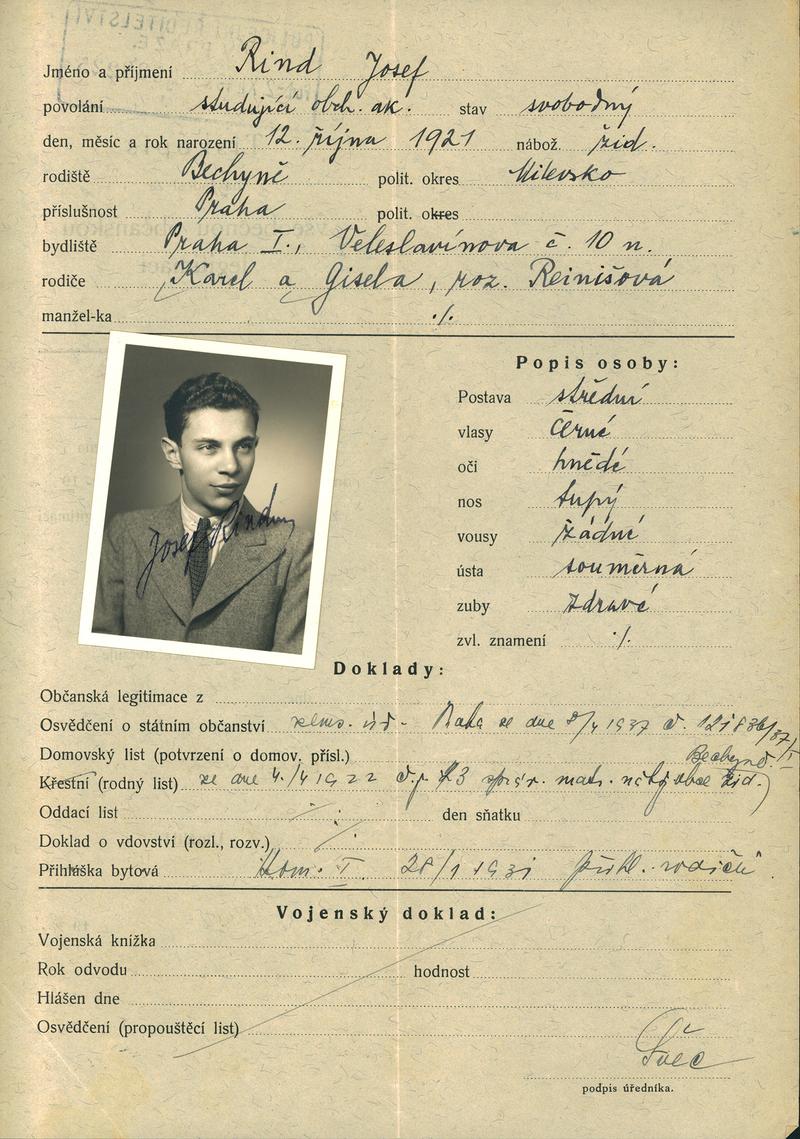 Jméno a příjmení Rind Josef
povolání studující obch. ak. stav svobodný
den, měsíc a rok narození 12. října 1921 nábož. žid.
rodiště Bechyně polit. okres Milevsko
příslušnost Praha polit. okres
bydliště Praha I., Veleslavínova č. 10 n.
rodiče Karel a Gisela, roz. Reinišová
manžel-ka ./.
Popis osoby:
Postava střední
vlasy černé
oči hnědé
nos tupý
vousy žádné
ústa souměrná
zuby zdravé
zvl. znamení ./.
Josef Rind
Doklady:
Občanská legitimace z
Osvědčení o státním občanství ze dne 1937 č.
Domovský list (potvrzení o domov. přísl.)
Bechyně
Křestní (rodný list) ze dne 4./4 1922 matr. žid.
Oddací list ./. den sňatku
Doklad o vdovství (rozl., rozv.) ./.
Přihláška bytová I. 28/1 1931 přihl. rodičů
Vojenský doklad:
Vojenská knížka
Rok odvodu hodnost
Hlášen dne
Osvědčení (propouštěcí list)
Švec
podpis úředníka.